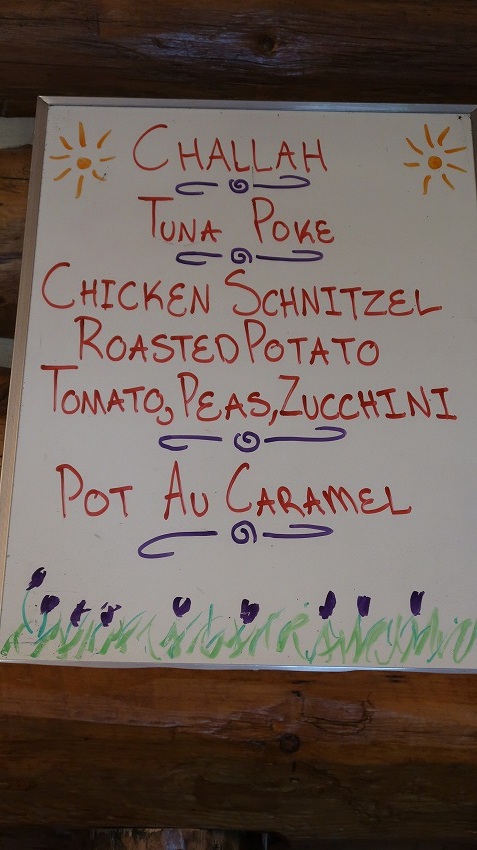 CHALLAH
TUNA POKE
CHICKEN SCHNITZEL
ROASTED POTATO
TOMATO, PEAS, ZUCCHINI
POT AU CARAMEL